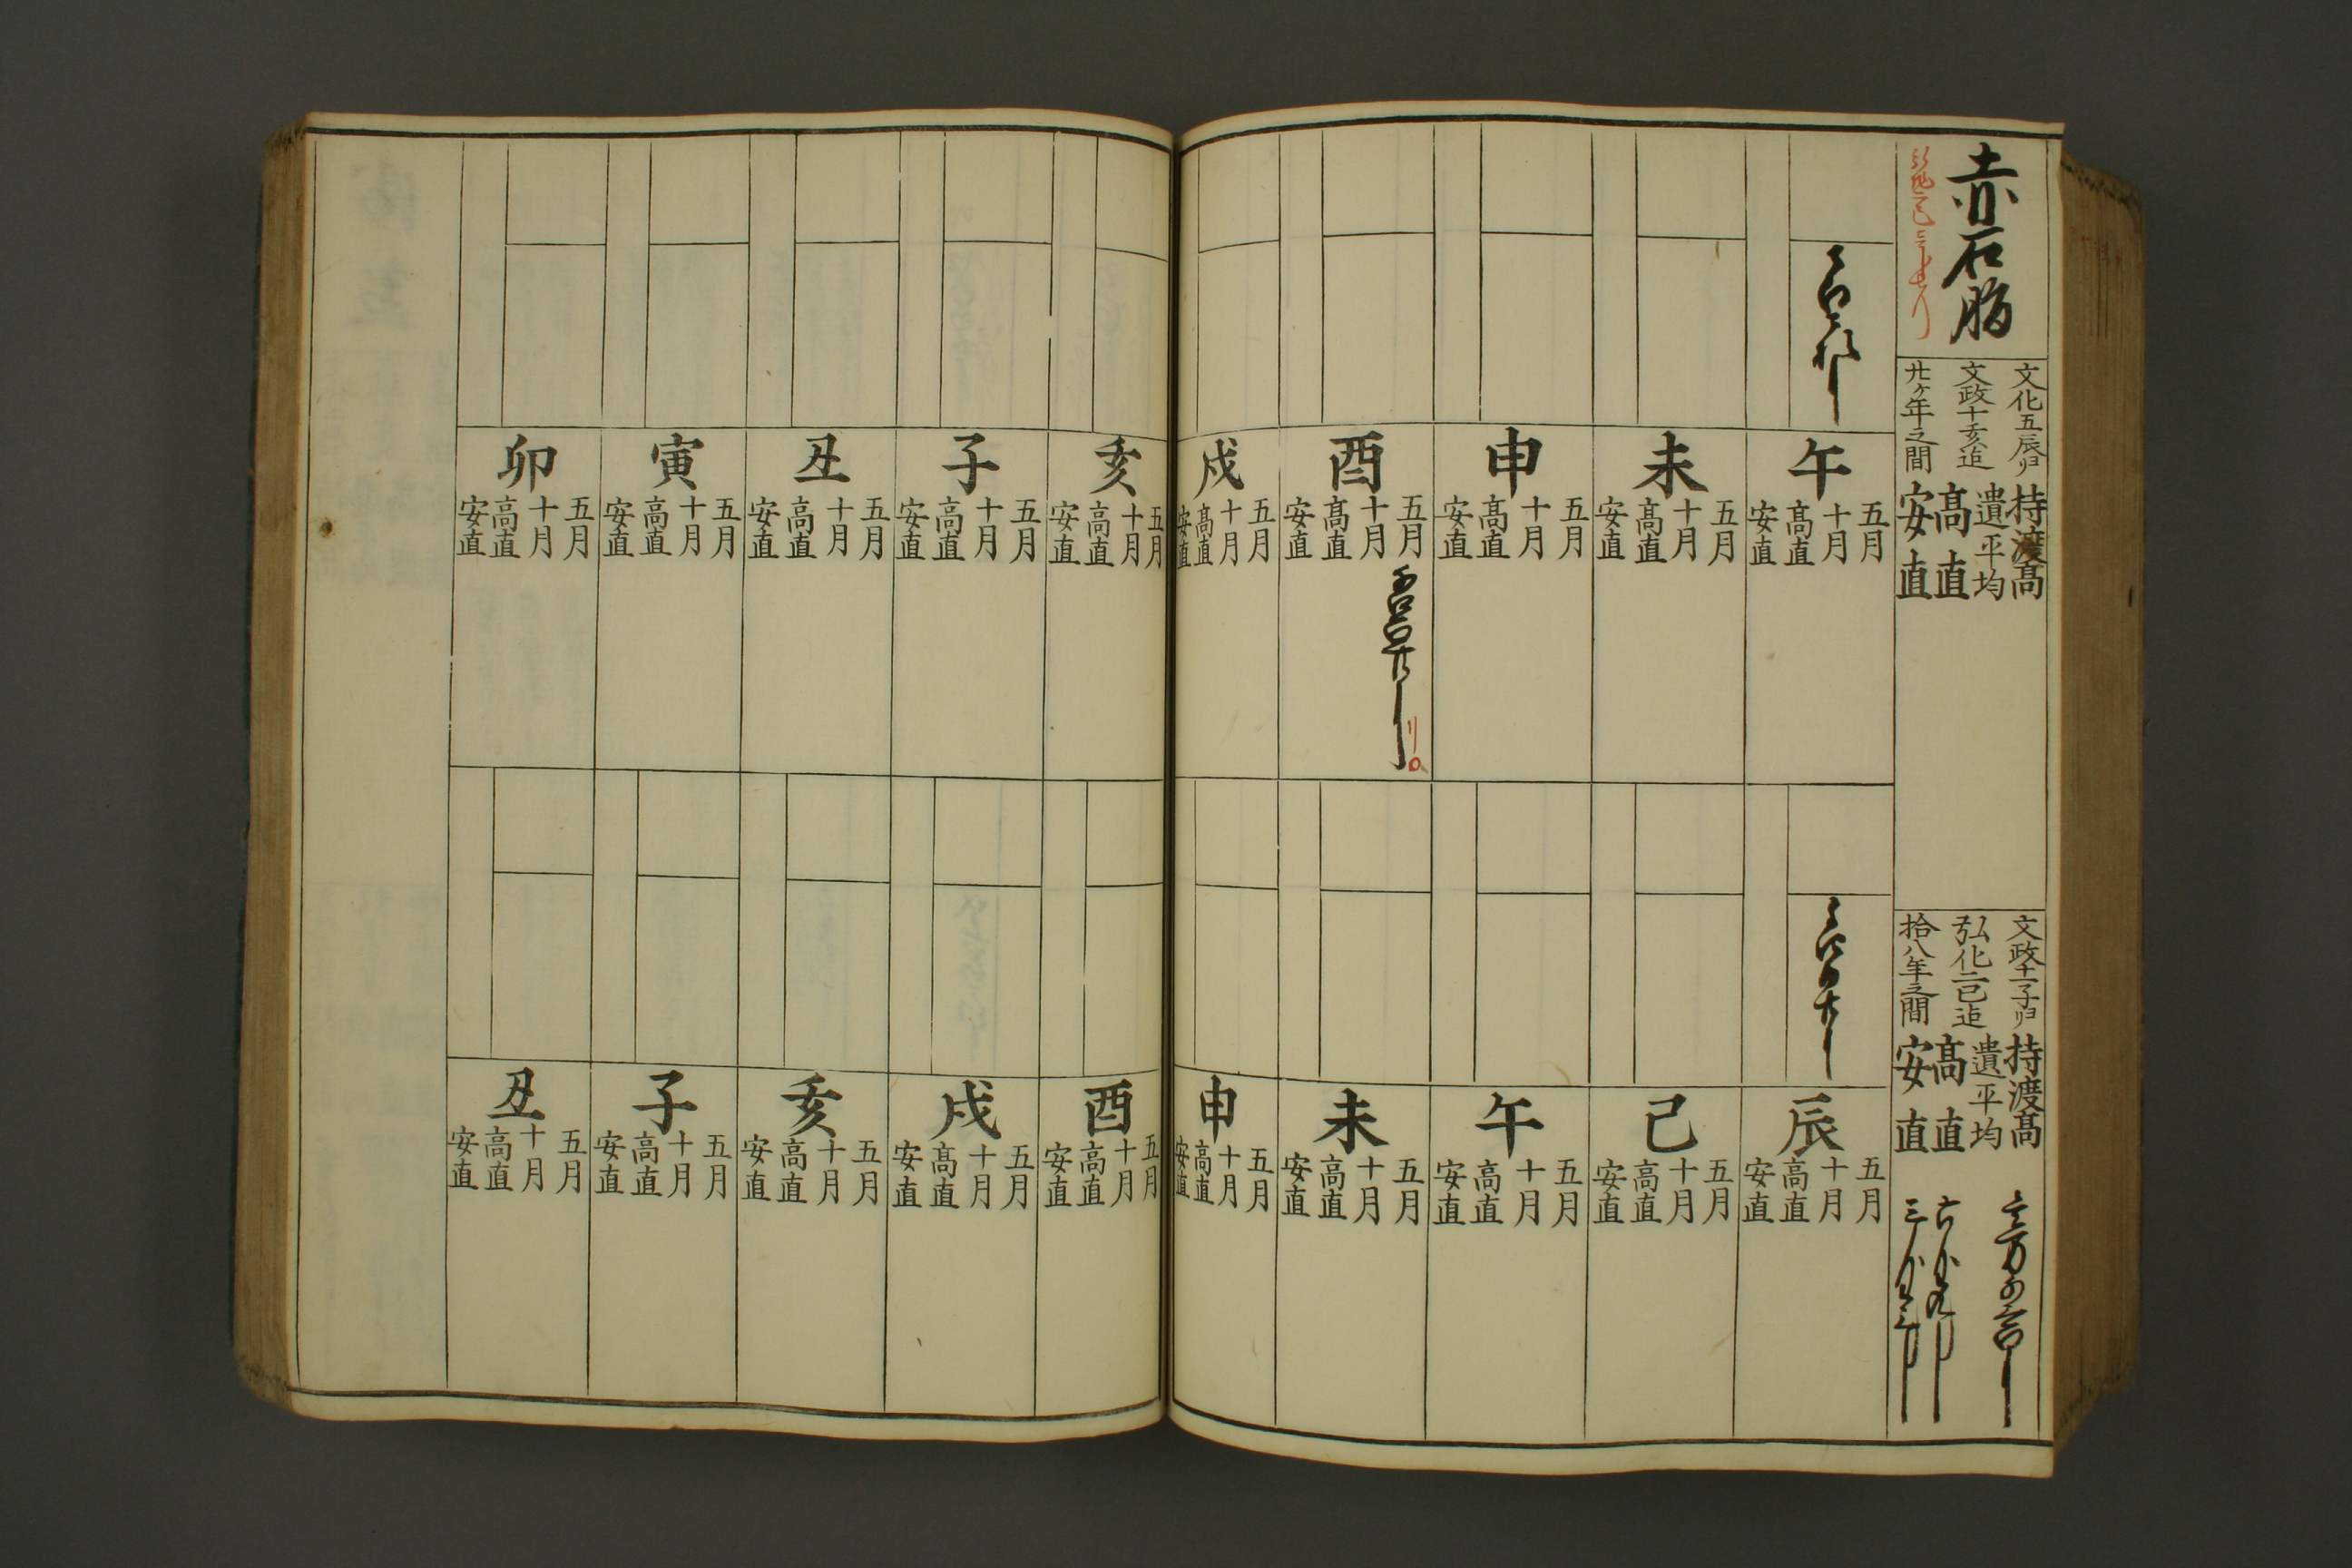 赤石脂
文化五辰ヨリ
文政十亥迄
廿ケ年之間
持渡髙
遺平均
髙直
安直
文政十一子ヨリ
弘化二巳迄
拾八年之間
持渡髙
遺平均
髙直
安直
午
五月
十月
髙直
安直
未
五月
十月
髙直
安直
申
五月
十月
髙直
安直
酉
五月
十月
髙直
安直
戌
五月
十月
髙直
安直
亥
五月
十月
髙直
安直
子
五月
十月
髙直
安直
丑
五月
十月
髙直
安直
寅
五月
十月
髙直
安直
卯
五月
十月
髙直
安直
辰
五月
十月
髙直
安直
巳
五月
十月
髙直
安直
午
五月
十月
髙直
安直
未
五月
十月
髙直
安直
申
五月
十月
髙直
安直
酉
五月
十月
髙直
安直
戌
五月
十月
髙直
安直
亥
五月
十月
髙直
安直
子
五月
十月
髙直
安直
丑
五月
十月
髙直
安直